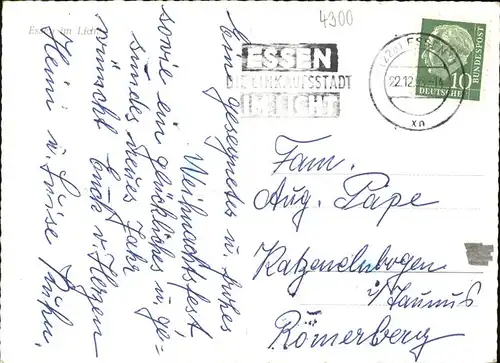 Essen im Licht
4300
ESSEN
DIE EINKAUFSSTADT
IM LICHT
(22a) ESSEN 1
22.12.
xn
10
DEUTSCHE BUNDESPOST
Ein gesegnetes u. frohes
Weihnachtsfest
sowie ein glückliches u. ge-
sundes neues Jahr
wünscht Euch v. Herzen
Heini u. Luise
Fam.
Aug. Pape
Katzenelnbogen
i/Taunus
Römerberg